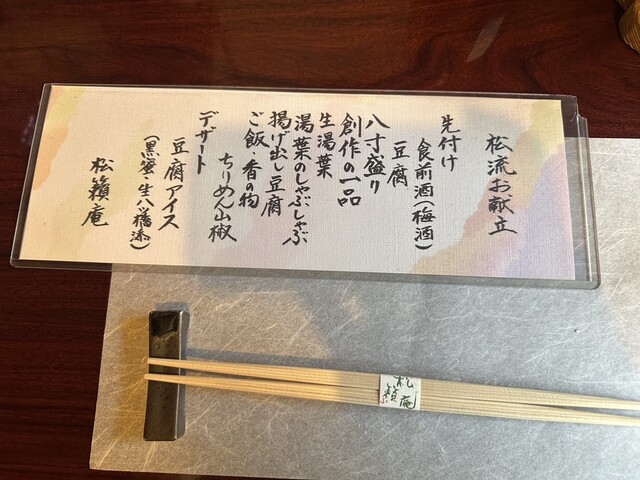 松流お献立
先付け
食前酒(梅酒)
豆腐
八寸盛り
創作の一品
生湯葉
湯葉のしゃぶしゃぶ
揚げ出し豆腐
ご飯 香の物
ちりめん山椒
デザート
豆腐アイス
(黒蜜 生八ツ橋添)
松籟庵
松籟庵